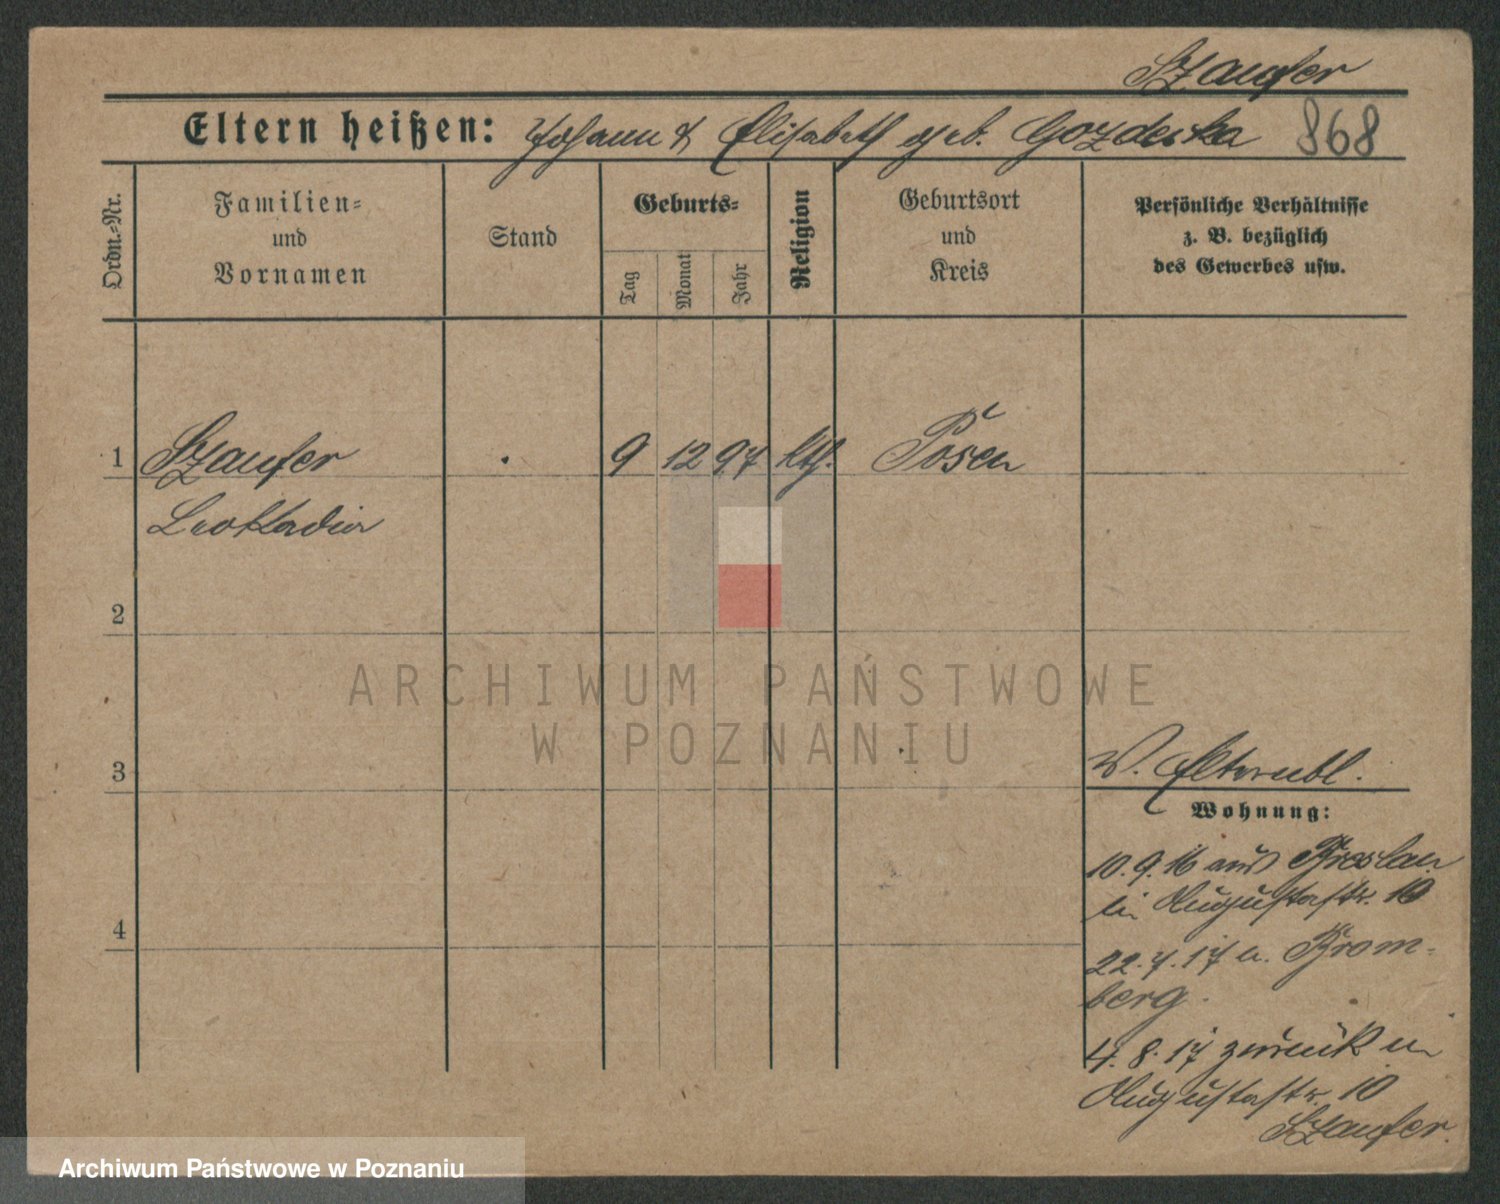 Szaufer
Eltern heißen: Johann & Elisabeth geb. Gozdecka 868
Ordn.-Nr.
Familien-
und
Vornamen
Stand
Geburts-
Tag
Monat
Jahr
Religion
Geburtsort
und
Kreis
Persönliche Verhältnisse
z. B. bezüglich
des Gewerbes usw.
1 Szaufer 9 12 97 kth. Posen
Leokadia
2
ARCHIWUM PAŃSTWOWE
W POZNANIU
3 W. Elternbl.
Wohnung:
10. 9. 16 aus Breslau
in Augustastr. 10
4
22. 7. 17 n. Brom-
berg.
4. 8. 17 zurück in
Augustastr. 10
Szaufer.
Archiwum Państwowe w Poznaniu